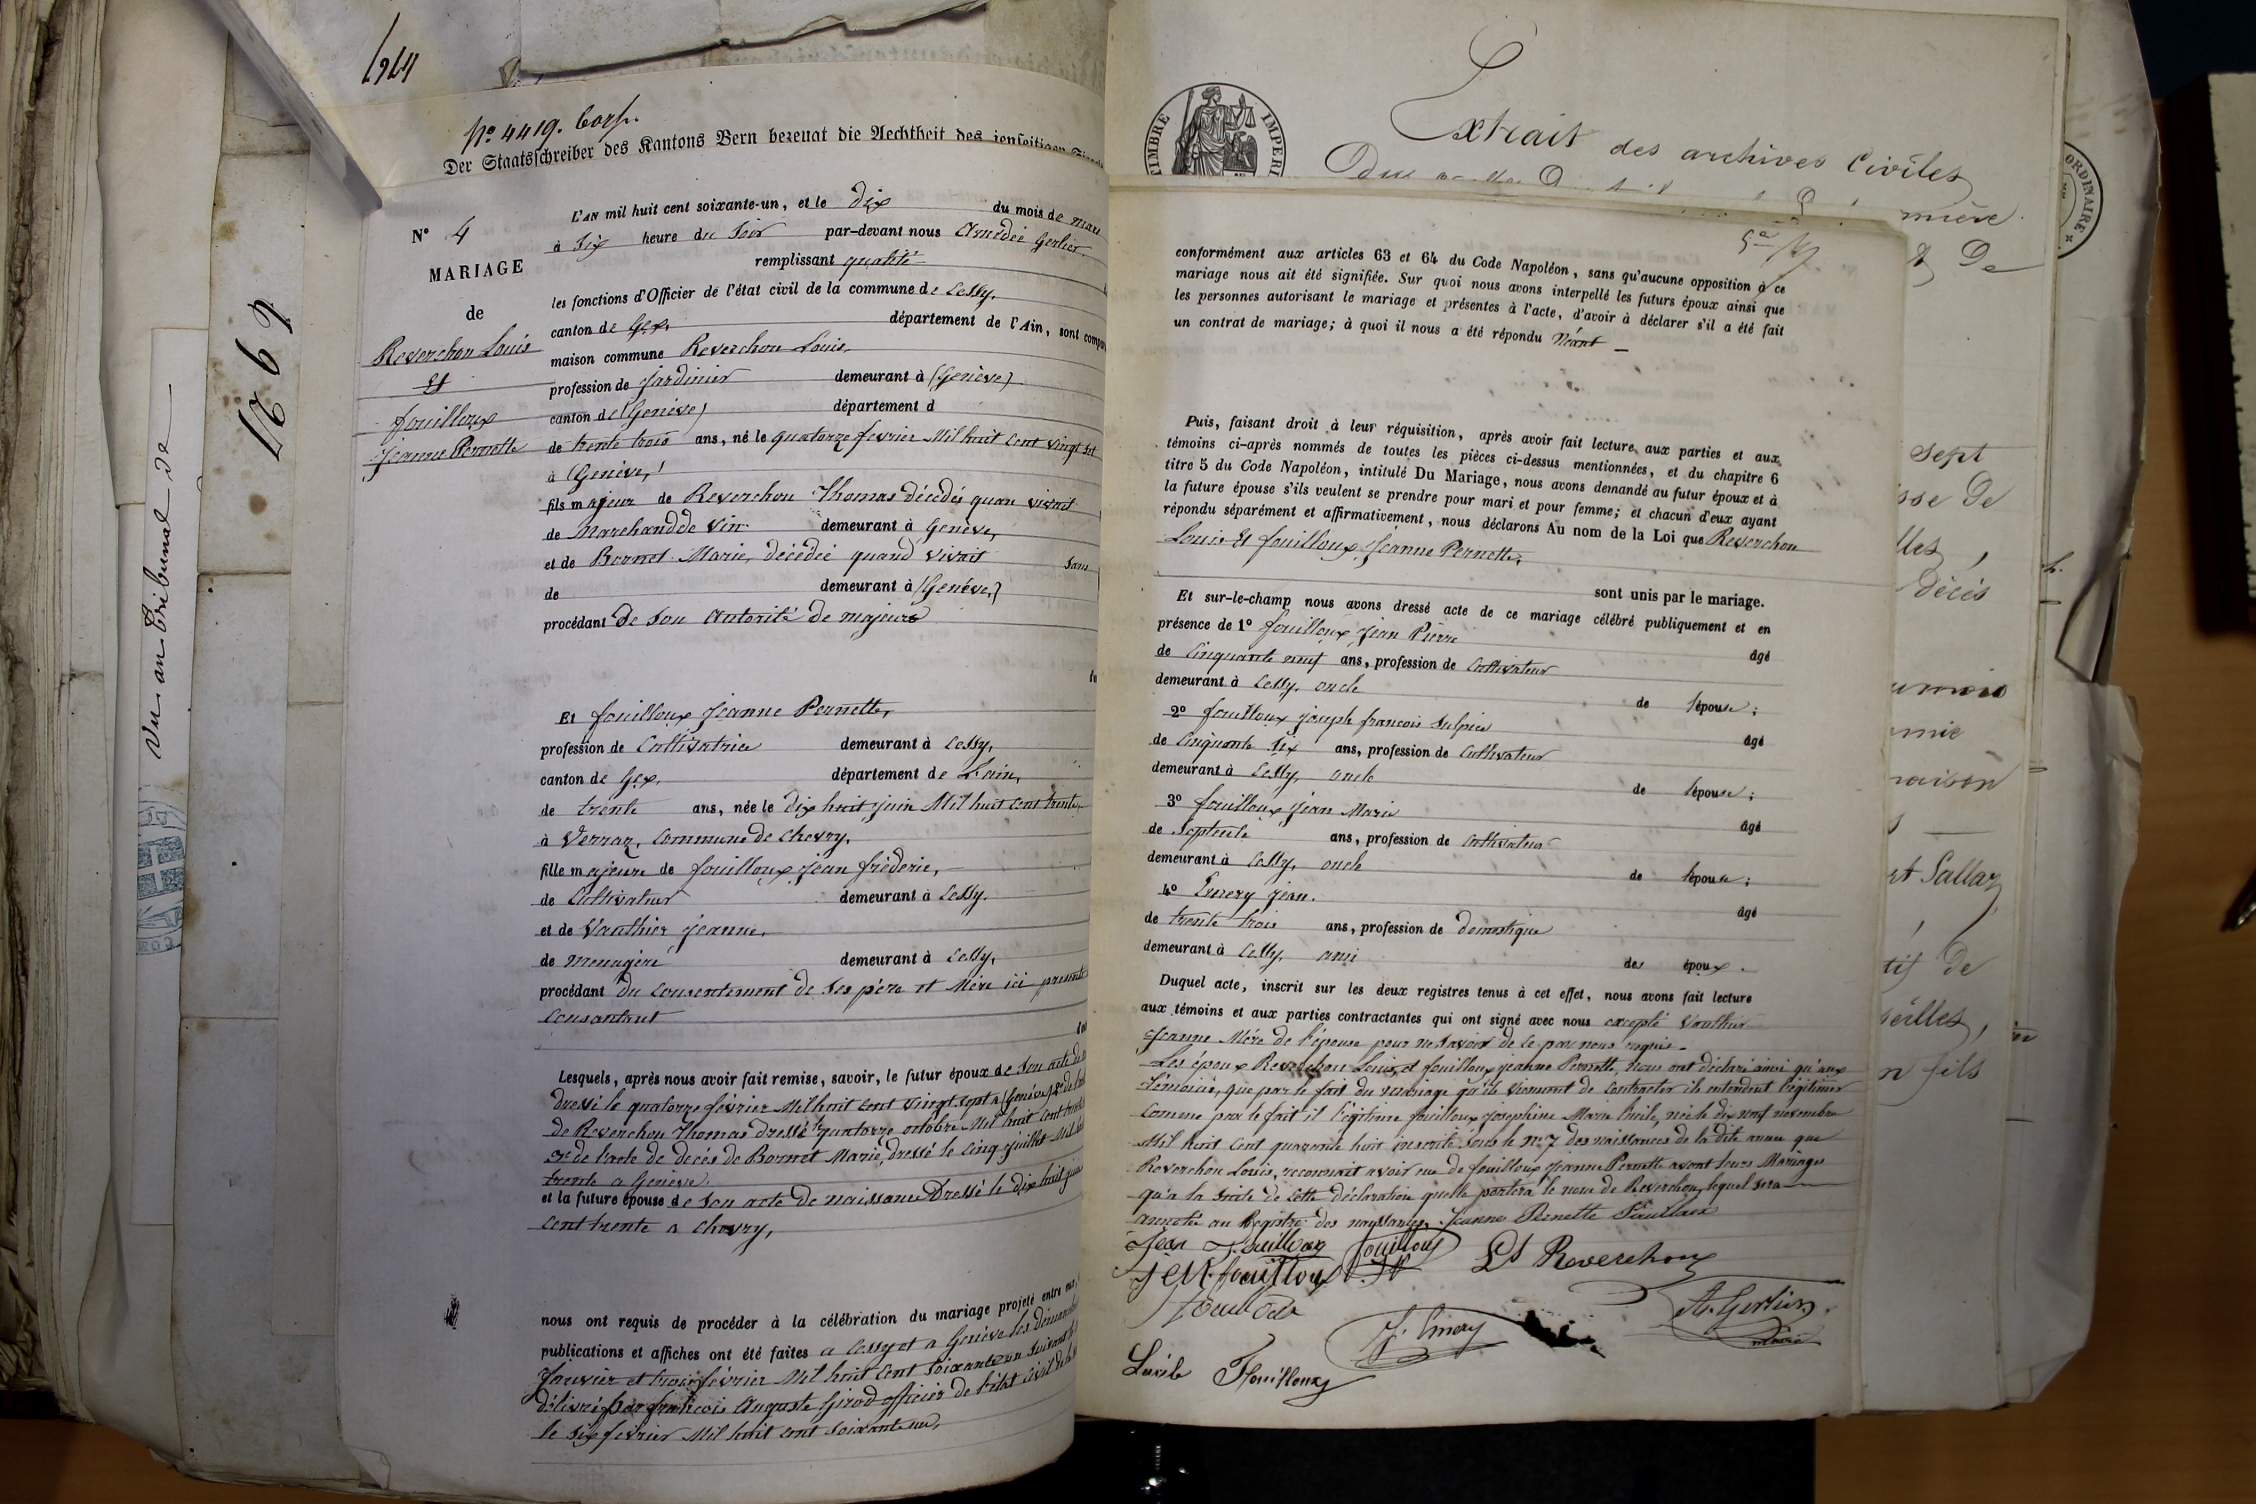 1964
Nº 4419. Corf.
Der Staatsschreiber des Kantons Bern bezeugt die Aechtheit des jenseitigen
Vu au Tribunal de
Nº 4
MARIAGE
de
Reverchon Louis
et
fouilloux
Jeanne Pernette
L'AN mil huit cent soixante-un, et le dix du mois de mars
à six heure du soir par-devant nous Amédée Gerlier
remplissant qualité
les fonctions d'Officier de l'état civil de la commune de Cessy,
canton de Gex, département de l'Ain, sont compa
maison commune Reverchon Louis,
profession de Jardinier demeurant à (Genève)
canton de (Genève) département d
de trente trois ans, né le quatorze février Mil huit cent vingt sept
à Genève,
fils majeur de Reverchon Thomas décédé quan vivait
de Marchand de Vin demeurant à Genève,
et de Bornet Marie, décédée quand vivait sans
de demeurant à (Genève,)
procédant de son autorité de majeurs
Et fouilloux Jeanne Pernette,
profession de Cultivatrice demeurant à Cessy,
canton de Gex, département de L'ain,
de trente ans, née le dix huit juin Mil huit cent trente
à Verraz, Commune de Chevry,
fille majeure de fouilloux Jean fréderic,
de Cultivateur demeurant à Cessy.
et de Vauthier Jeanne,
de menagère demeurant à Cessy,
procédant du consentement de ses père et Mère ici présents
Consantant
Lesquels, après nous avoir fait remise, savoir, le futur époux de son acte de
dressé le quatorze février Mil huit cent vingt sept a (Genève) 2º de l'acte
de Reverchon Thomas dressé le quatorze octobre Mil huit cent trente
3º de l'acte de decés de Bornet Marie, dressé le cinq juillet Mil huit
trente a Genève
et la future épouse de son acte de naissance Dressé le dix huit juin
cent trente a Chevry,
nous ont requis de procéder à la célébration du mariage projeté entre eux,
publications et affiches ont été faites a Cessy et a Genève les dimanches
Janvier et trois février Mil huit cent soixante un suivant
délivré par francois Auguste Girod officier de l'état civil de la
le six février Mil huit cent soixante un,
TIMBRE IMPERI
Extrait des archives Civiles
ORDINAIRE
conformément aux articles 63 et 64 du Code Napoléon, sans qu'aucune opposition à ce
mariage nous ait été signifiée. Sur quoi nous avons interpellé les futurs époux ainsi que
les personnes autorisant le mariage et présentes à l'acte, d'avoir à déclarer s'il a été fait
un contrat de mariage; à quoi il nous a été répondu Néant
Puis, faisant droit à leur réquisition, après avoir fait lecture aux parties et aux
témoins ci-après nommés de toutes les pièces ci-dessus mentionnées, et du chapitre 6
titre 5 du Code Napoléon, intitulé Du Mariage, nous avons demandé au futur époux et à
la future épouse s'ils veulent se prendre pour mari et pour femme; et chacun d'eux ayant
répondu séparément et affirmativement, nous déclarons Au nom de la Loi que Reverchon
Louis Et fouilloux Jeanne Pernette,
sont unis par le mariage.
Et sur-le-champ nous avons dressé acte de ce mariage célébré publiquement et en
présence de 1º fouilloux Jean Pierre âgé
de Cinquante neuf ans, profession de Cultivateur
demeurant à Cessy, oncle de l'épouse;
2º fouilloux joseph francois Sulpice âgé
de Cinquante six ans, profession de Cultivateur
demeurant à Cessy, oncle de l'épouse;
3º fouilloux Jean Marie âgé
de Septente ans, profession de Cultivateur
demeurant à Cessy, oncle de l'épouse;
4º Emery Jean. âgé
de trente trois ans, profession de domestique
demeurant à Cessy, ami des époux.
Duquel acte, inscrit sur les deux registres tenus à cet effet, nous avons fait lecture
aux témoins et aux parties contractantes qui ont signé avec nous excepté Vauthier
Jeanne Mère de l'épouse pour ne savoir de ce par nous requis.
Les époux Reverchon Louis et fouilloux jeanne Pernette, nous ont déclaré ainsi qu'aux
témoins, que par le fait du mariage qu'ils viennent de contracter ils entendent légitimer
comme par le fait il légitime fouilloux Josephine Marie Lucile, née le dix neuf novembre
Mil huit cent quarante huit inscrite sous le nº 7 des naissances de la dite année que
Reverchon Louis, reconnait avoir eue de fouilloux Jeanne Pernette avant leurs Mariages
qu'a la suite de cette déclaration quelle portera le nom de Reverchon, lequel sera
annotée au Registre des naissances, Jeanne Pernette Fouilloux
Jean Fouilloux Fouilloux Ls Reverchon
J M fouilloux
fouilloux A. Gerlier,
maire
J. Emery
Lucile Fouilloux
sept
décés
raison
et Sallaz
n fils